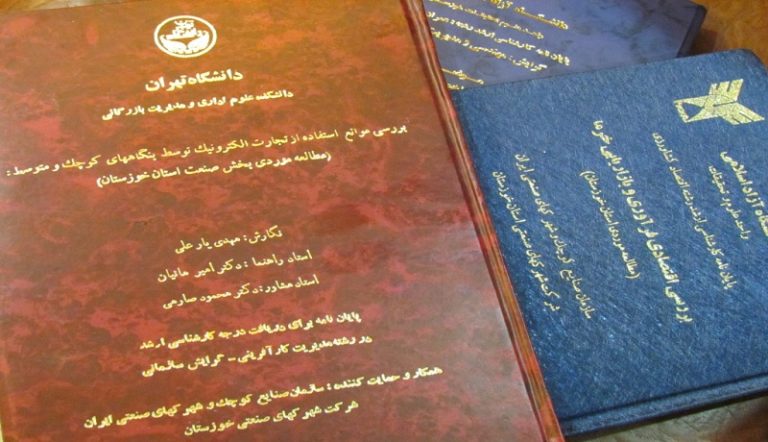 دانشگاه تهران
دانشکده علوم اداری و مدیریت بازرگانی
بررسی موانع استفاده از تجارت الکترونیک توسط بنگاههای کوچک و متوسط :
(مطالعه موردی بخش صنعت استان خوزستان)
نگارش: مهدی یار علی
استاد راهنما : دکتر امیر مانیان
استاد مشاور: دکتر محمود صارمی
پایان نامه برای دریافت درجه کارشناسی ارشد
در رشته مدیریت کارآفرینی - گرایش سازمانی
همکار و حمایت کننده : سازمان صنایع کوچک و شهرکهای صنعتی ایران
شرکت شهرکهای صنعتی خوزستان
آزاد اسلامی
واحد علوم و تحقیقات
پایان نامه کارشناسی ارشد رشته اقتصاد کشاورزی
بررسی اقتصادی فرآوری و بازاریابی خرما
(مطالعه موردی استان خوزستان)
سازمان صنایع کوچک و شهرکهای صنعتی ایران
شرکت شهرکهای صنعتی استان خوزستان
پایان نامه کارشناسی ارشد رشته